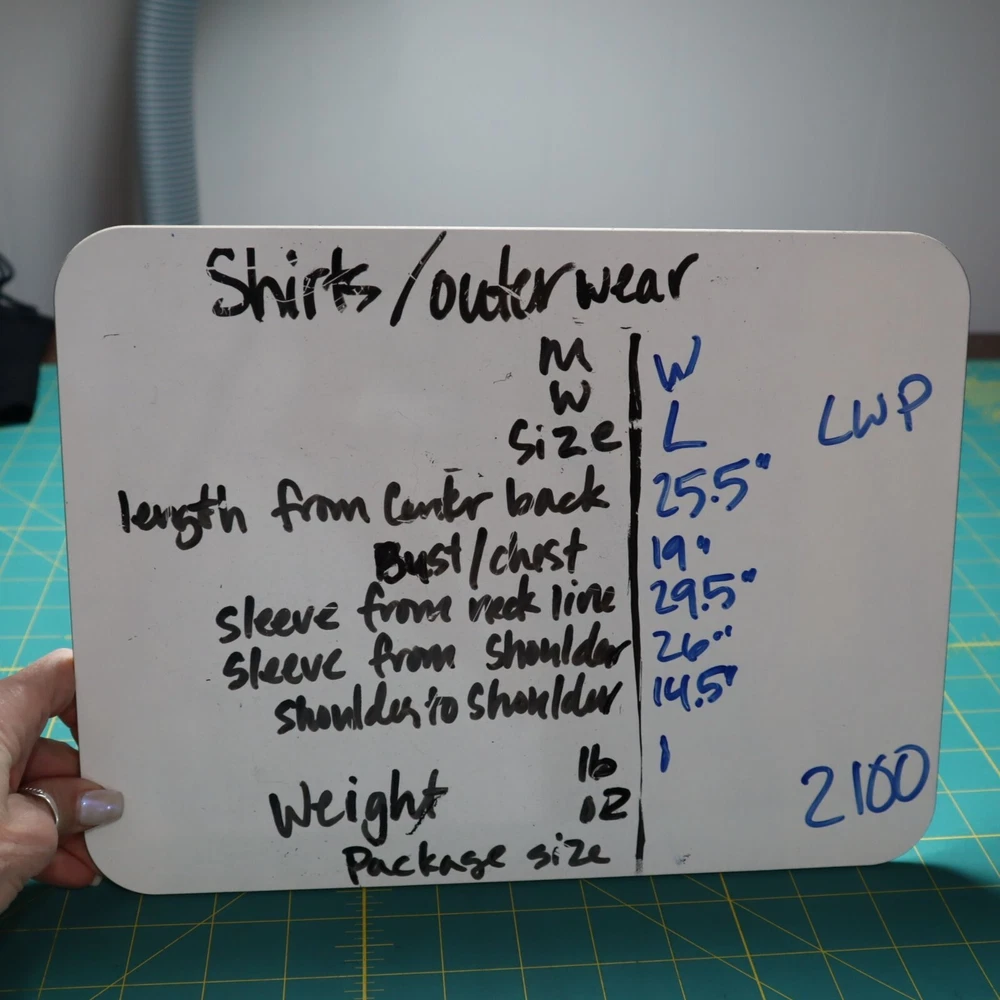 Shirts/outerwear
M W
W
LWP
size L
length from Center back 25.5"
Bust/chest 19"
sleeve from neck line 29.5"
sleeve from shoulder 26"
shoulder to shoulder 14.5"
lb 1
2100
Weight oz
Package size